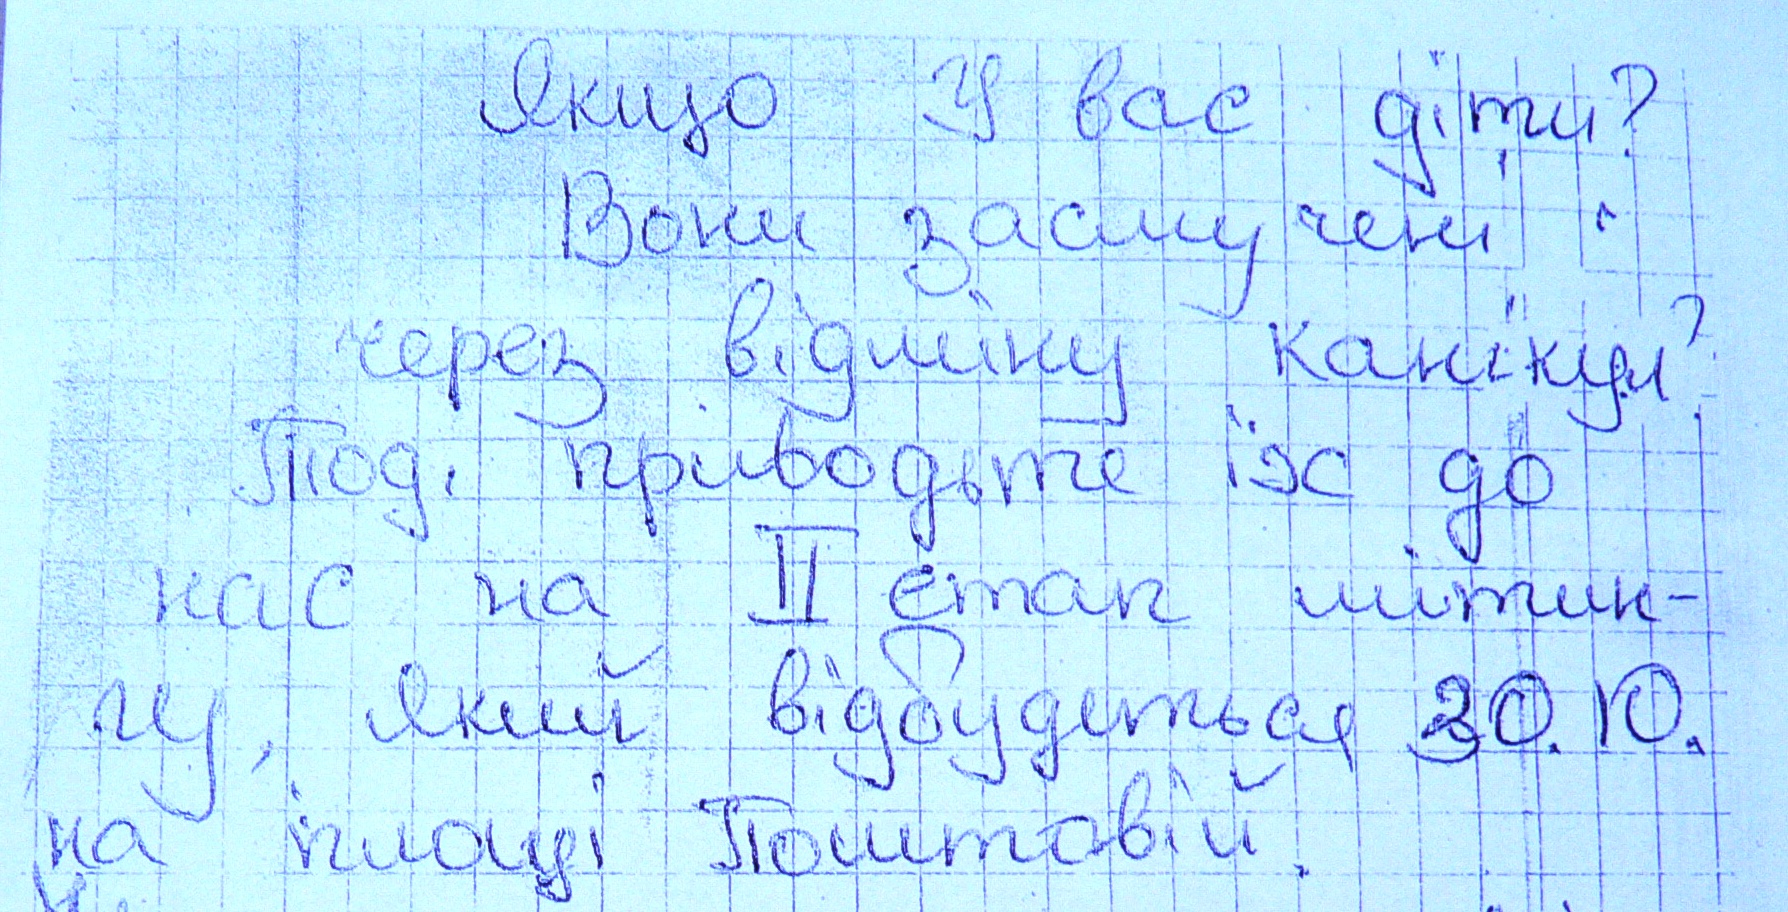 Якщо У вас діти?
Вони засмучені
через відміну канікул?
Тоді приводьте їх до
нас на II етап мітин-
гу, який відбудеться 30.10.
на площі Поштовій.